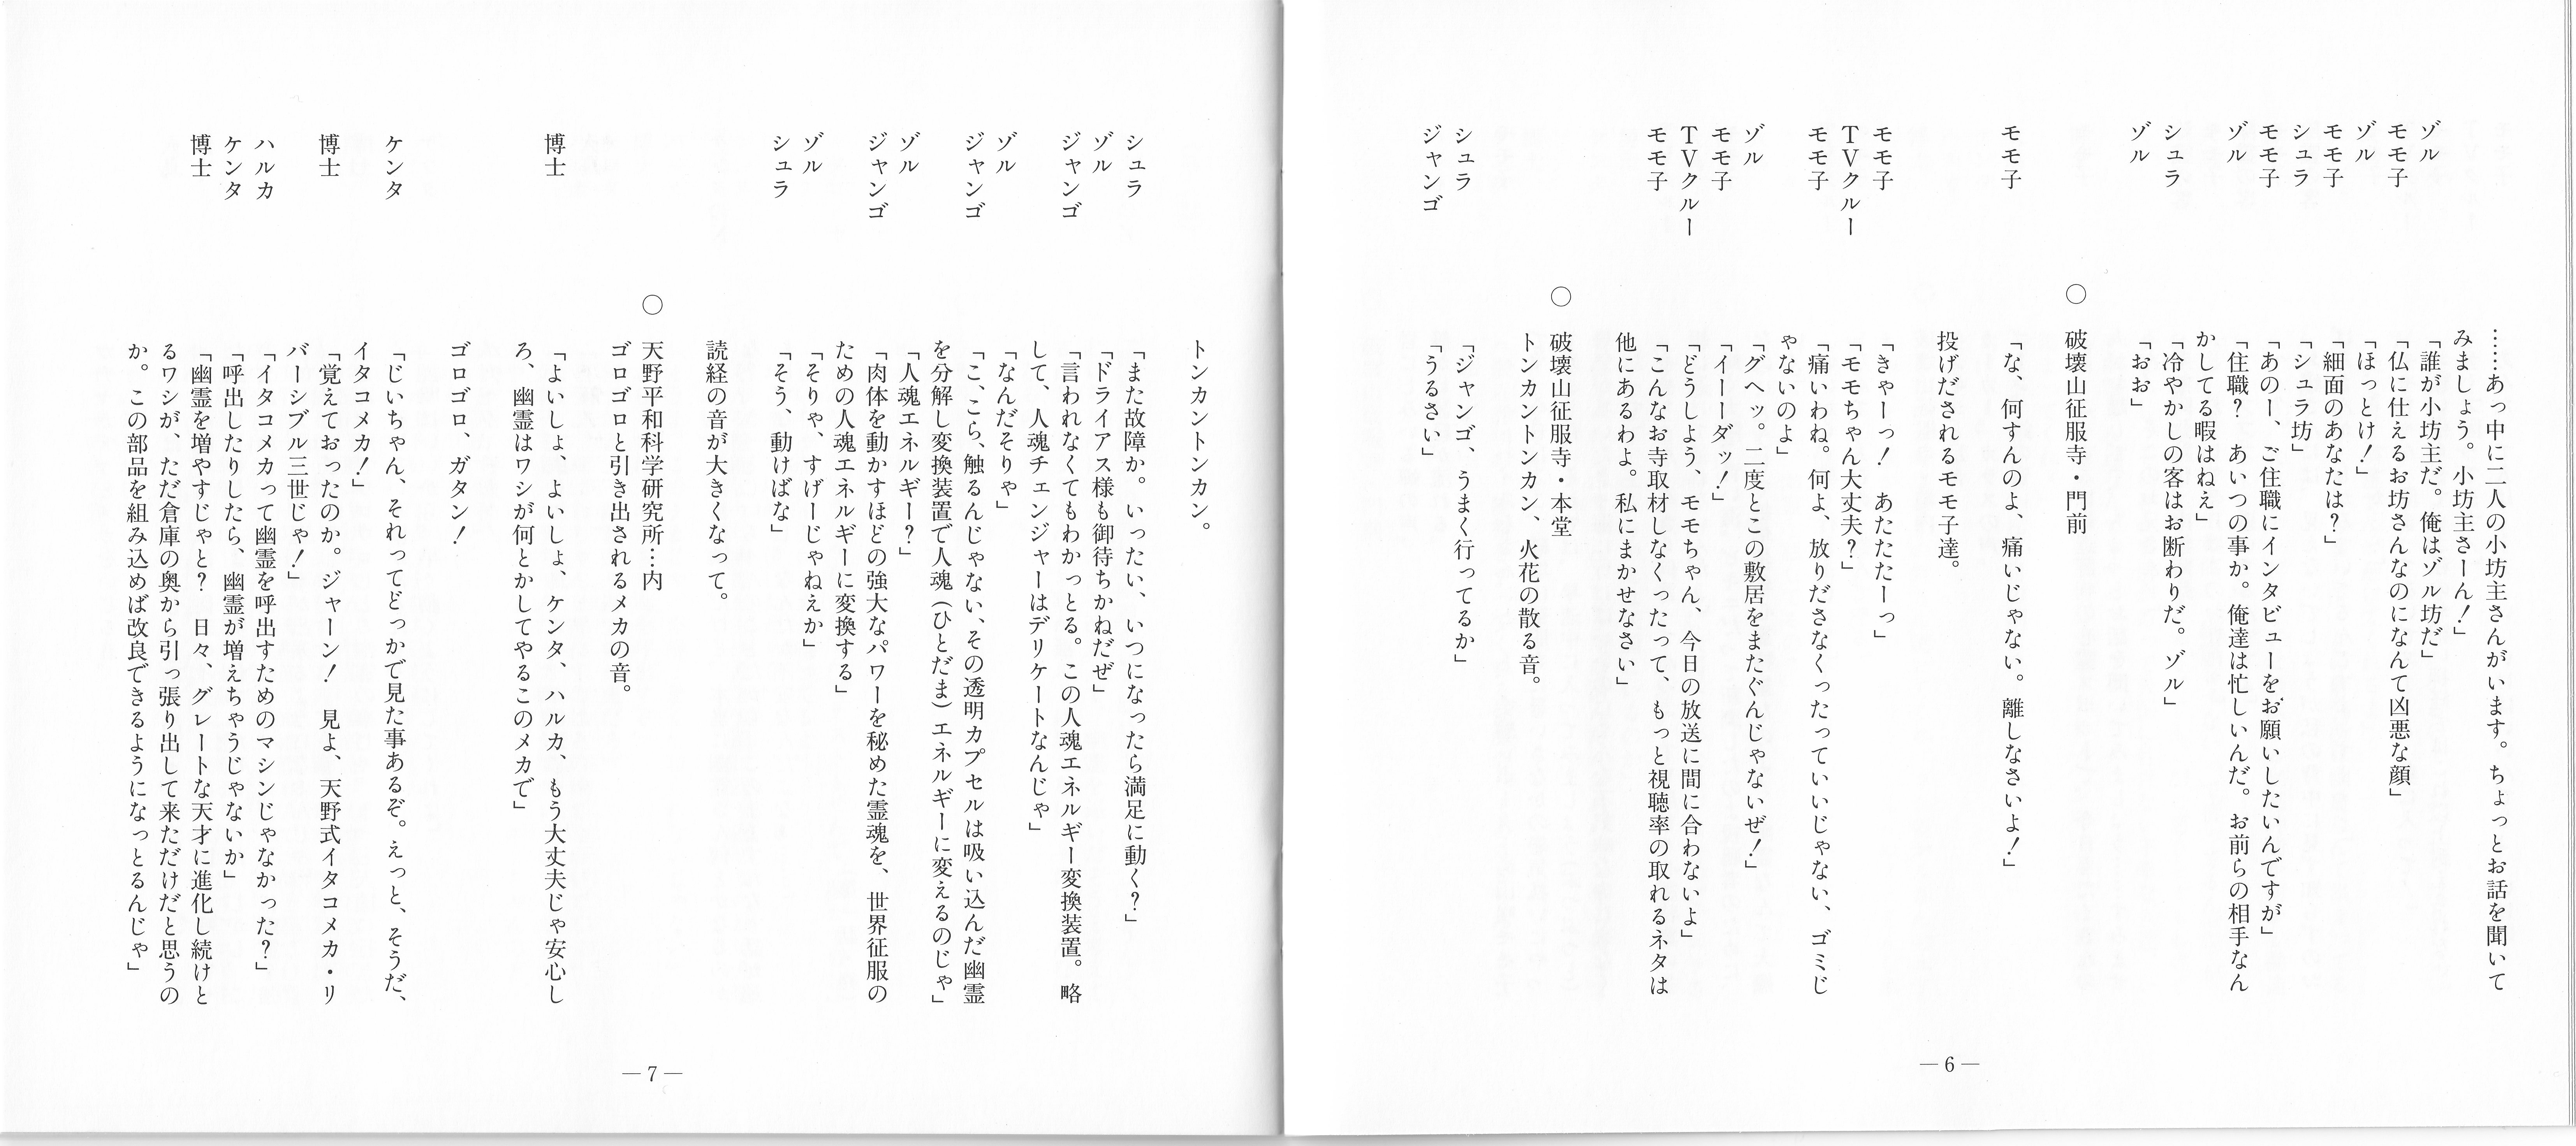 ……あっ中に二人の小坊主さんがいます。ちょっとお話を聞いて
みましょう。小坊主さーん！」
ゾル　「誰が小坊主だ。俺はゾル坊だ」
モモ子　「仏に仕えるお坊さんなのになんて凶悪な顔」
ゾル　「ほっとけ！」
モモ子　「細面のあなたは？」
シュラ　「シュラ坊」
モモ子　「あのー、ご住職にインタビューをお願いしたいんですが」
ゾル　「住職？　あいつの事か。俺達は忙しいんだ。お前らの相手なん
かしてる暇はねえ」
シュラ　「冷やかしの客はお断わりだ。ゾル」
ゾル　「おお」
○　破壊山征服寺・門前
モモ子　「な、何すんのよ、痛いじゃない。離しなさいよ！」
投げだされるモモ子達。
モモ子　「きゃーっ！　あたたたーっ」
TVクルー　「モモちゃん大丈夫？」
モモ子　「痛いわね。何よ、放りださなくったっていいじゃない、ゴミじ
ゃないのよ」
ゾル　「グヘッ。二度とこの敷居をまたぐんじゃないぜ！」
モモ子　「イーーダッ！」
TVクルー　「どうしよう、モモちゃん、今日の放送に間に合わないよ」
モモ子　「こんなお寺取材しなくったって、もっと視聴率の取れるネタは
他にあるわよ。私にまかせなさい」
○　破壊山征服寺・本堂
トンカントンカン、火花の散る音。
シュラ　「ジャンゴ、うまく行ってるか」
ジャンゴ　「うるさい」
—6—
トンカントンカン。
シュラ　「また故障か。いったい、いつになったら満足に動く？」
ゾル　「ドライアス様も御待ちかねだぜ」
ジャンゴ　「言われなくてもわかっとる。この人魂エネルギー変換装置。略
して、人魂チェンジャーはデリケートなんじゃ」
ゾル　「なんだそりゃ」
ジャンゴ　「こ、こら、触るんじゃない、その透明カプセルは吸い込んだ幽霊
を分解し変換装置で人魂（ひとだま）エネルギーに変えるのじゃ」
ゾル　「人魂エネルギー？」
ジャンゴ　「肉体を動かすほどの強大なパワーを秘めた霊魂を、世界征服の
ための人魂エネルギーに変換する」
ゾル　「そりゃ、すげーじゃねえか」
シュラ　「そう、動けばな」
読経の音が大きくなって。
○　天野平和科学研究所…内
ゴロゴロと引き出されるメカの音。
博士　「よいしょ、よいしょ、ケンタ、ハルカ、もう大丈夫じゃ安心し
ろ、幽霊はワシが何とかしてやるこのメカで」
ゴロゴロ、ガタン！
ケンタ　「じいちゃん、それってどっかで見た事あるぞ。えっと、そうだ、
イタコメカ！」
博士　「覚えておったのか。ジャーン！　見よ、天野式イタコメカ・リ
バーシブル三世じゃ！」
ハルカ　「イタコメカって幽霊を呼出すためのマシンじゃなかった？」
ケンタ　「呼出したりしたら、幽霊が増えちゃうじゃないか」
博士　「幽霊を増やすじゃと？　日々、グレートな天才に進化し続けと
るワシが、ただ倉庫の奥から引っ張り出して来ただけだと思うの
か。この部品を組み込めば改良できるようになっとるんじゃ」
—7—